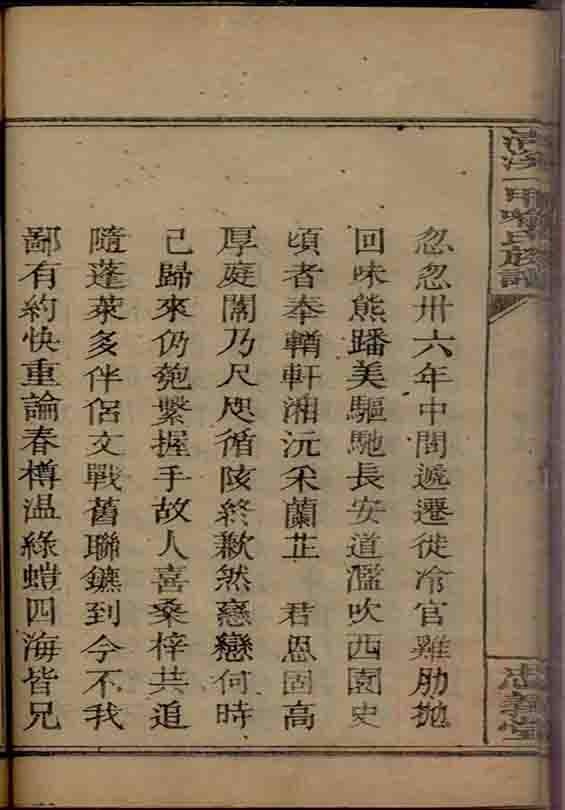 氏族譜
堂
忽忽卅六年中間遞遷徙冷官雞肋拋
回味熊蹯美驅馳長安道濫吹西園史
頃者奉輶軒湘沅采蘭芷　君恩固高
厚庭闈乃尺咫循陔終歉然戀戀何時
己歸來仍匏繫握手故人喜桑梓共追
隨蓬萊多伴侶文戰舊聯鑣到今不我
鄙有約快重論春樽温綠螘四海皆兄